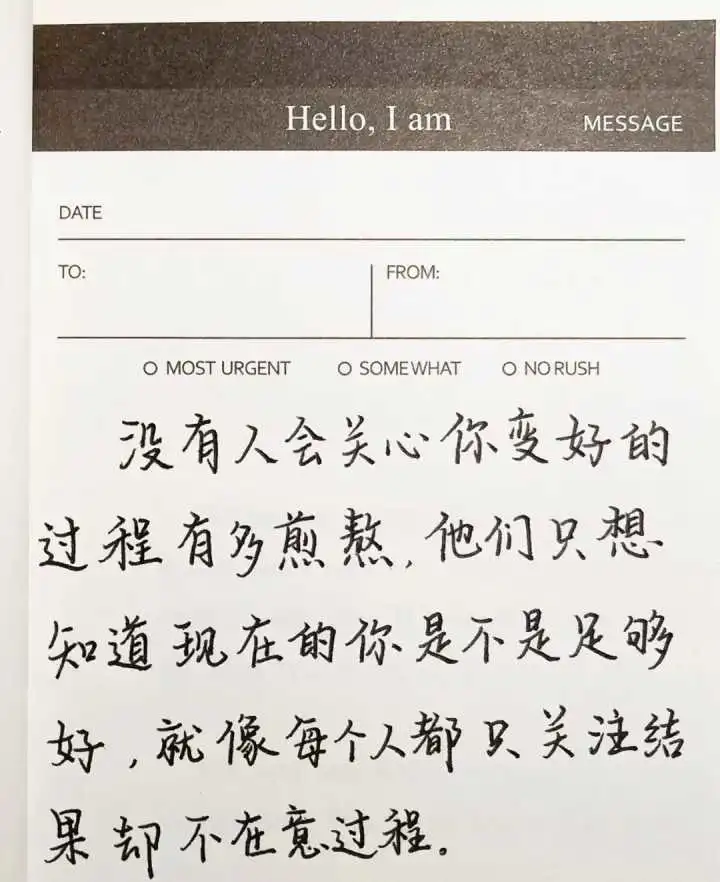 Hello, I am
MESSAGE
DATE
TO:
FROM:
MOST URGENT
SOMEWHAT
NO RUSH
没有人会关心你变好的
过程有多煎熬,他们只想
知道现在的你是不是足够
好,就像每个人都只关注结
果却不在意过程。